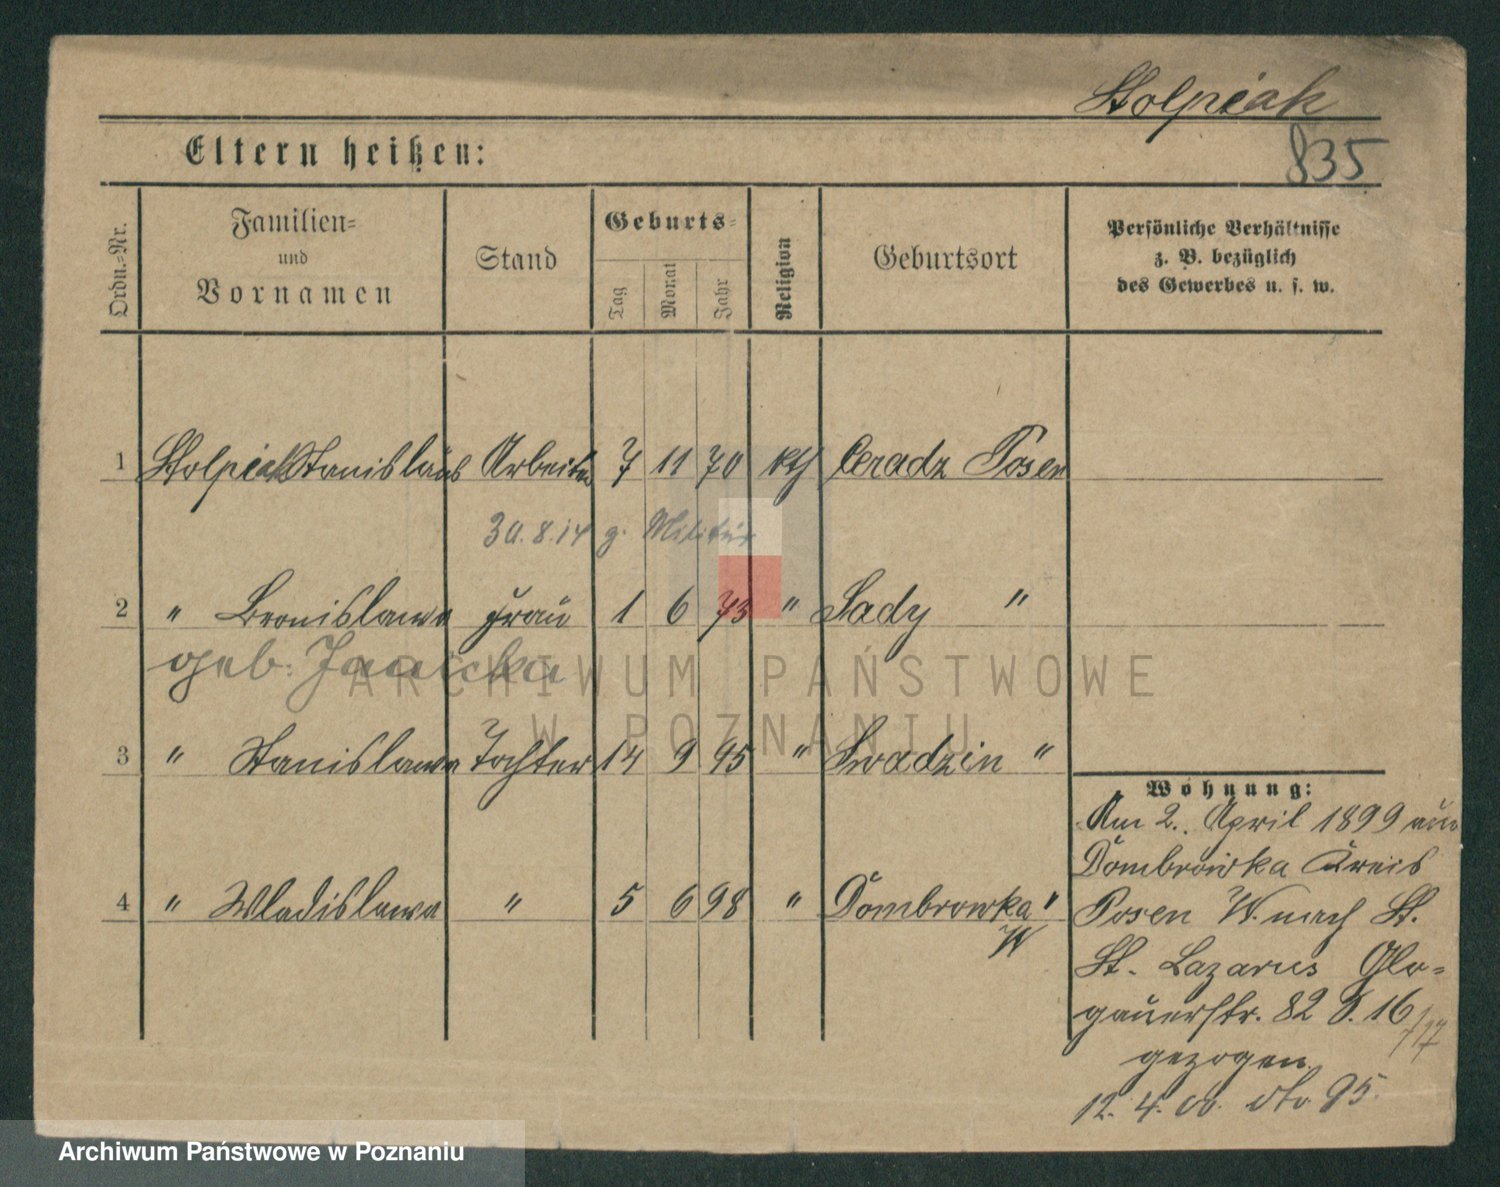 Stolpiak
835
Eltern heißen:
Ordn.-Nr.
Familien-
und
Vornamen
Stand
Geburts-
Tag
Monat
Jahr
Religion
Geburtsort
Persönliche Verhältnisse
z. B. bezüglich
des Gewerbes u. s. w.
1 Stolpiak Stanislaus Arbeiter 7 11 70 kth Ceradz Posen
30.8.14 z. Militär
2 " Bronislawa Frau 1 6 73 " Sady "
geb. Janicka
3 " Stanislawa Tochter 14 9 95 " Swadzin "
4 " Wladislawa " 5 6 98 " Dombrowka "
W
Wohnung:
Am 2. April 1899 aus
Dombrowka Kreis
Posen W. nach St.
St. Lazarus Glo-
gauerstr. 82 S. 16/17
gezogen.
12. 4. 00. dto 95.
ARCHIWUM PAŃSTWOWE
W POZNANIU
Archiwum Państwowe w Poznaniu